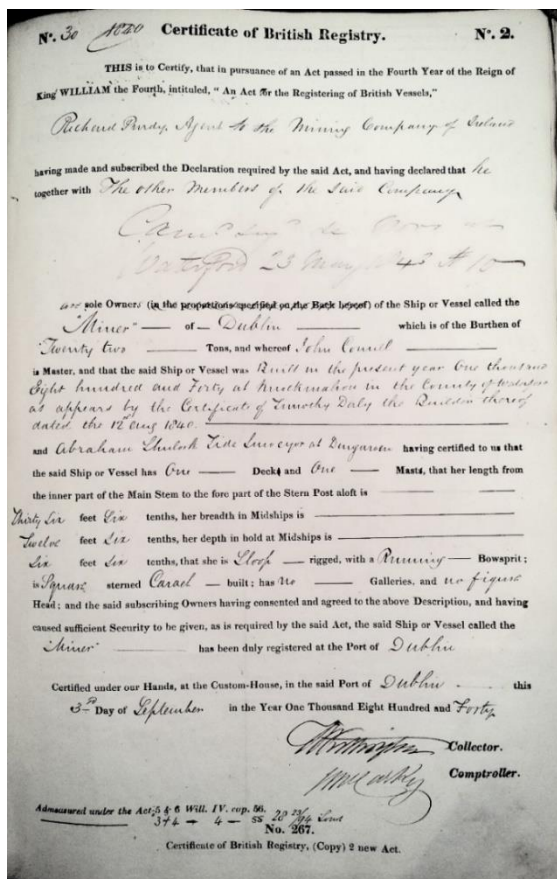 Nº. 30 1840 Certificate of British Registry. Nº. 2.
THIS is to Certify, that in pursuance of an Act passed in the Fourth Year of the Reign of
King WILLIAM the Fourth, intituled, "An Act for the Registering of British Vessels,"
Richard Purdy, Agent to the Mining Company of Ireland
having made and subscribed the Declaration required by the said Act, and having declared that he
together with The other Members of the said Company
Waterford 23 May
are sole Owners (in the proportions specified on the Back hereof) of the Ship or Vessel called the
"Miner" of Dublin which is of the Burthen of
Twenty two Tons, and whereof John Connell
is Master, and that the said Ship or Vessel was Built in the present year One thousand
Eight hundred and Forty at Knockmahon in the County of Waterford
as appears by the Certificate of Timothy Daly the Builder thereof
dated the 12th Aug 1840.
and Abraham Tide Surveyor at Dungarvan having certified to us that
the said Ship or Vessel has One Deck and One Masts, that her length from
the inner part of the Main Stem to the fore part of the Stern Post aloft is
Thirty Six feet Six tenths, her breadth in Midships is
Twelve feet Six tenths, her depth in hold at Midships is
Six feet Six tenths, that she is Sloop rigged, with a Running Bowsprit;
is Square sterned Carael built; has no Galleries, and no figure
Head; and the said subscribing Owners having consented and agreed to the above Description, and having
caused sufficient Security to be given, as is required by the said Act, the said Ship or Vessel called the
"Miner" has been duly registered at the Port of Dublin
Certified under our Hands, at the Custom-House, in the said Port of Dublin this
3rd Day of September in the Year One Thousand Eight Hundred and Forty
Collector.
Comptroller.
Admeasured under the Act 5 & 6 Will. IV. cap. 56.
No. 267.
Certificate of British Registry, (Copy) 2 new Act.